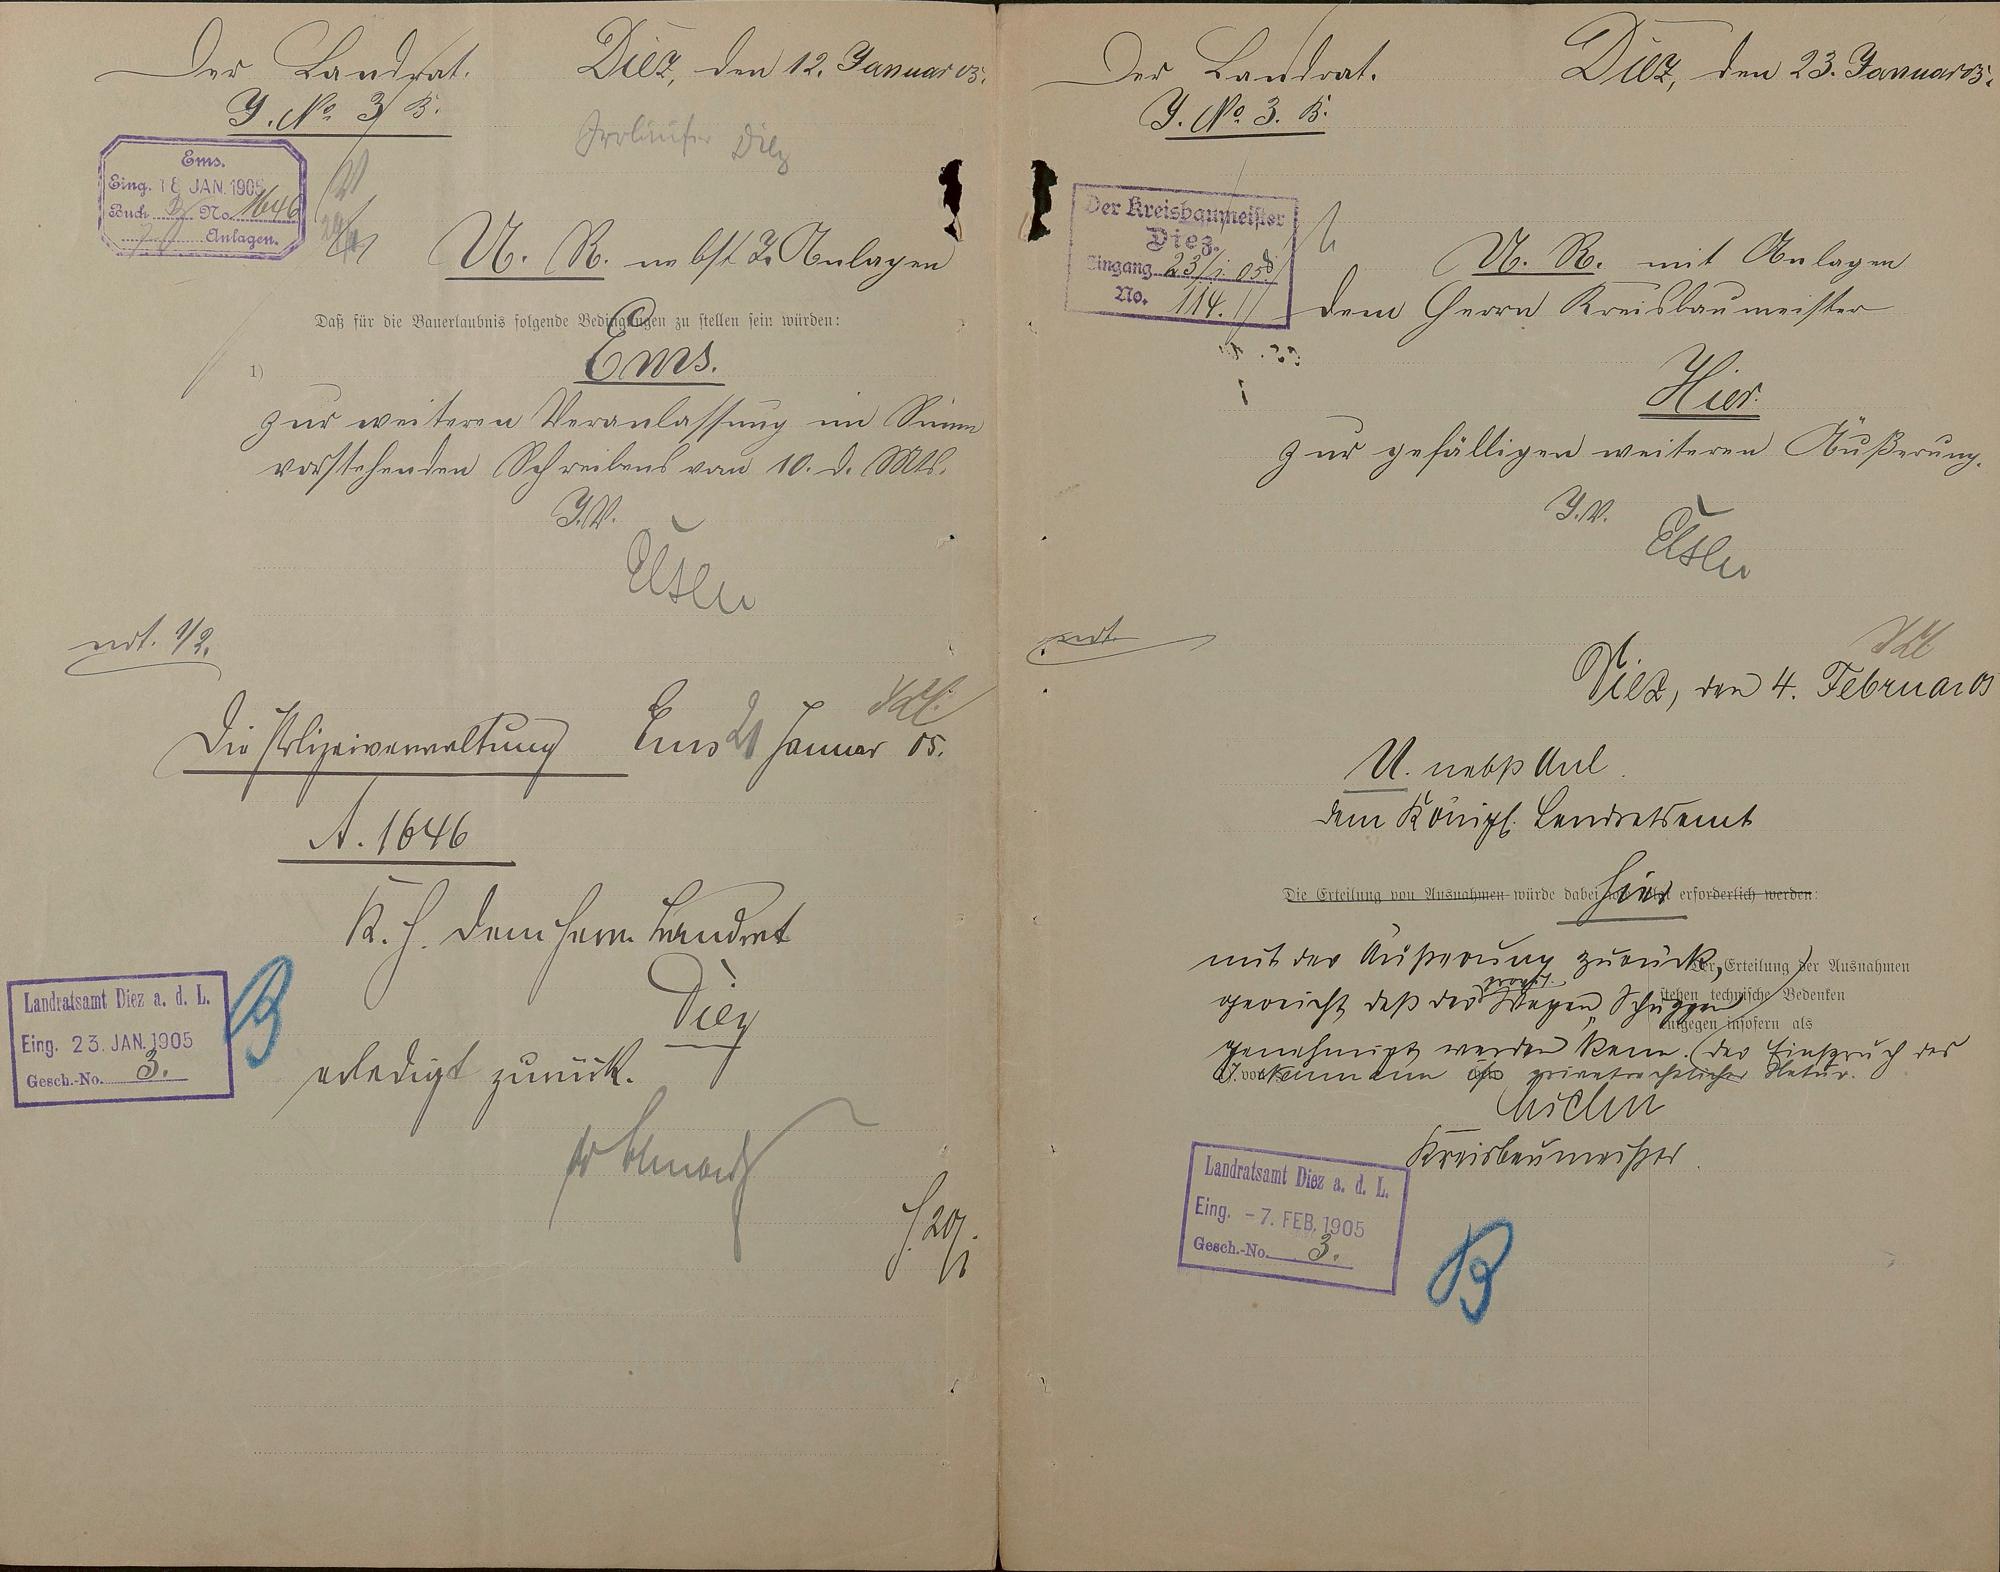 Der Landrat.
Diez, den 12. Januar 05.
J. No. 3 B.
Ems.
Eing. 18 JAN. 1905
Buch B No. 1646
Anlagen.
U. R. nebst 2. Anlagen
Daß für die Bauerlaubnis folgende Bedingungen zu stellen sein würden:
Ems.
1)
zur weiteren Veranlassung im Sinne
vorstehenden Schreibens vom 10. d. Mts.
J.V.
ndt. 1/2.
Die Polizeiverwaltung
Ems 21 Januar 05.
A. 1646
K. H. dem Herrn Landrat
Diez
erledigt zurück.
Landratsamt Diez a. d. L.
Eing. 23. JAN. 1905
Gesch.-No. 3.
B
Der Landrat.
Diez, den 23. Januar 05.
J. No. 3. B.
Der Kreisbaumeister
Diez.
Eingang 23/1. 05
No. 114.
U. R. mit Anlagen
dem Herrn Kreisbaumeister
Hier.
zur gefälligen weiteren Äußerung.
J.V.
Diez, den 4. Februar 05
U. nebst Anl.
dem Königl. Landratsamt
Die Erteilung von Ausnahmen würde dabei erforderlich werden:
hier
mit der Äußerung zurück,
Der Erteilung der Ausnahmen
stehen technische Bedenken
entgegen insofern als
gereicht, daß der Wagen Schuppen
genehmigt werden kann. (der Einspruch des
Neumann ist privatrechtlicher Natur.
Kreisbaumeister.
Landratsamt Diez a. d. L.
Eing. - 7. FEB. 1905
Gesch.-No. 3.
B